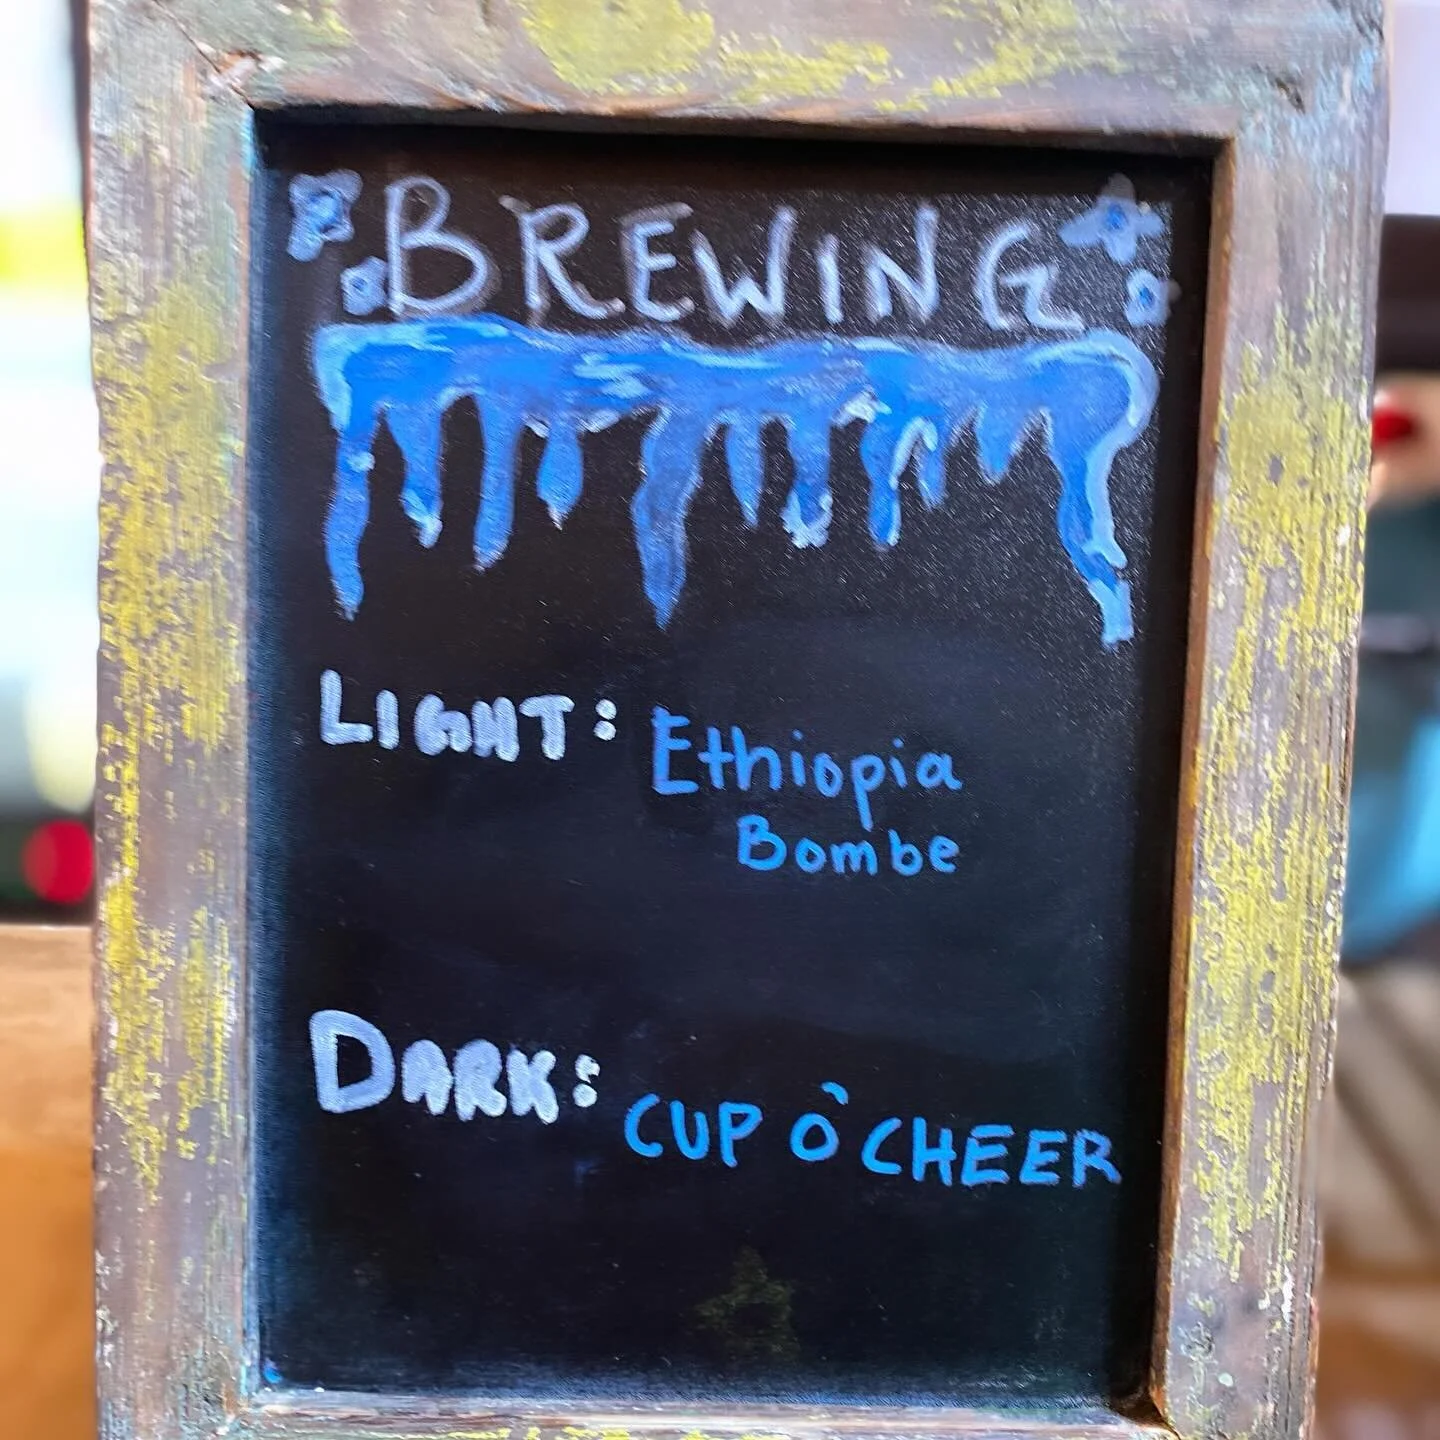 BREWING
LIGHT: Ethiopia
Bombe
DARK: CUP O' CHEER